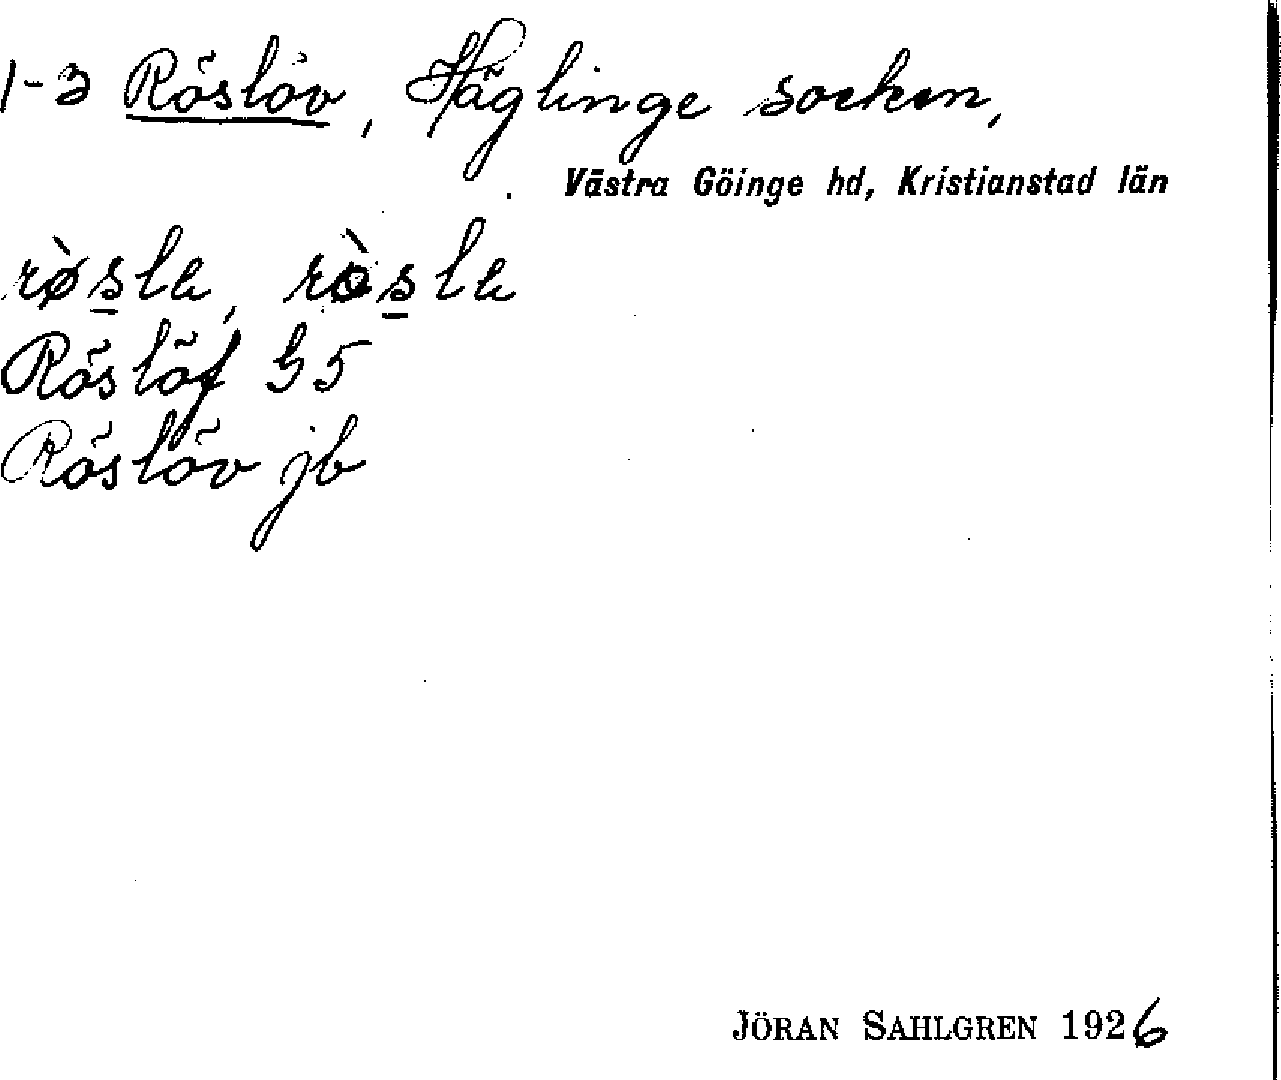 1-3 Röslöv, Häglinge socken,
Västra Göinge hd, Kristianstad län
rø̀sla, rò̀sla
Röslöf G5
Röslöv jb
JÖRAN SAHLGREN 1926